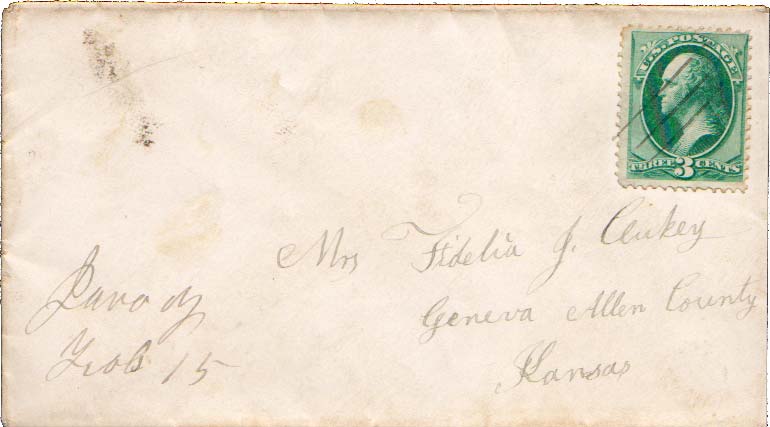 U.S. POSTAGE
THREE 3 CENTS
Mrs Fidelia J. Clukey
Geneva Allen County
Kansas
Feb 15